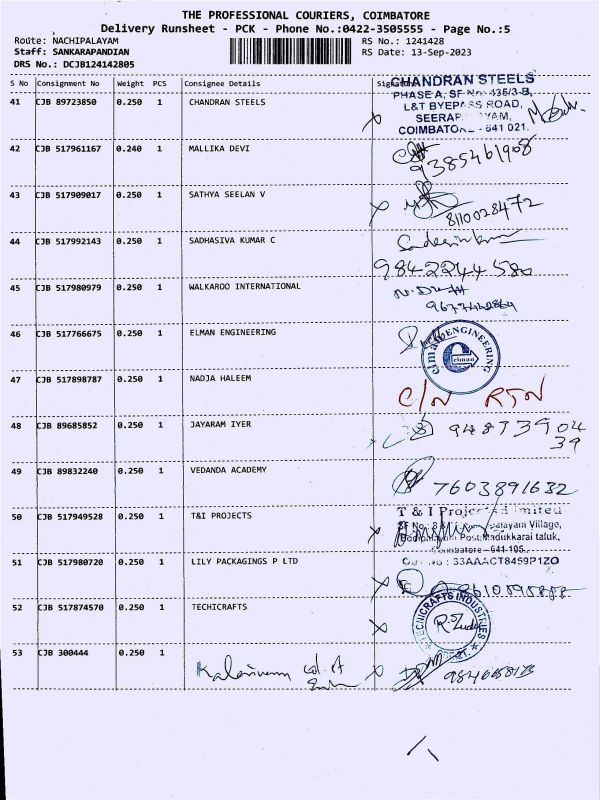 THE PROFESSIONAL COURIERS, COIMBATORE
Delivery Runsheet - PCK - Phone No.:0422-3505555 - Page No.:5
Route: NACHIPALAYAM RS No.: 1241428
Staff: SANKARAPANDIAN RS Date: 13-Sep-2023
DRS No.: DCJB124142805
S No Consignment No Weight PCS Consignee Details
41 CJB 89723850 0.250 1 CHANDRAN STEELS
CHANDRAN STEELS
PHASE A, SF No: 436/3-B,
L&T BYEPASS ROAD,
COIMBATORE - 641 021.
42 CJB 517961167 0.240 1 MALLIKA DEVI
9385461908
43 CJB 517909017 0.250 1 SATHYA SEELAN V
8110028472
44 CJB 517992143 0.250 1 SADHASIVA KUMAR C
9842244580
45 CJB 517980979 0.250 1 WALKAROO INTERNATIONAL
46 CJB 517766675 0.250 1 ELMAN ENGINEERING
elman ENGINEERING
elman
47 CJB 517898787 0.250 1 NADJA HALEEM
C/N RTN
48 CJB 89685852 0.250 1 JAYARAM IYER
94873904
39
49 CJB 89832240 0.250 1 VEDANDA ACADEMY
7603891632
50 CJB 517949528 0.250 1 T&I PROJECTS
T & I Projects Limited
Village,
Post, Madukkarai taluk,
Coimbatore - 641 105.
: 33AAACT8459P1ZO
51 CJB 517980720 0.250 1 LILY PACKAGINGS P LTD
52 CJB 517874570 0.250 1 TECHICRAFTS
TECHICRAFTS INDUSTRIES
53 CJB 300444 0.250 1